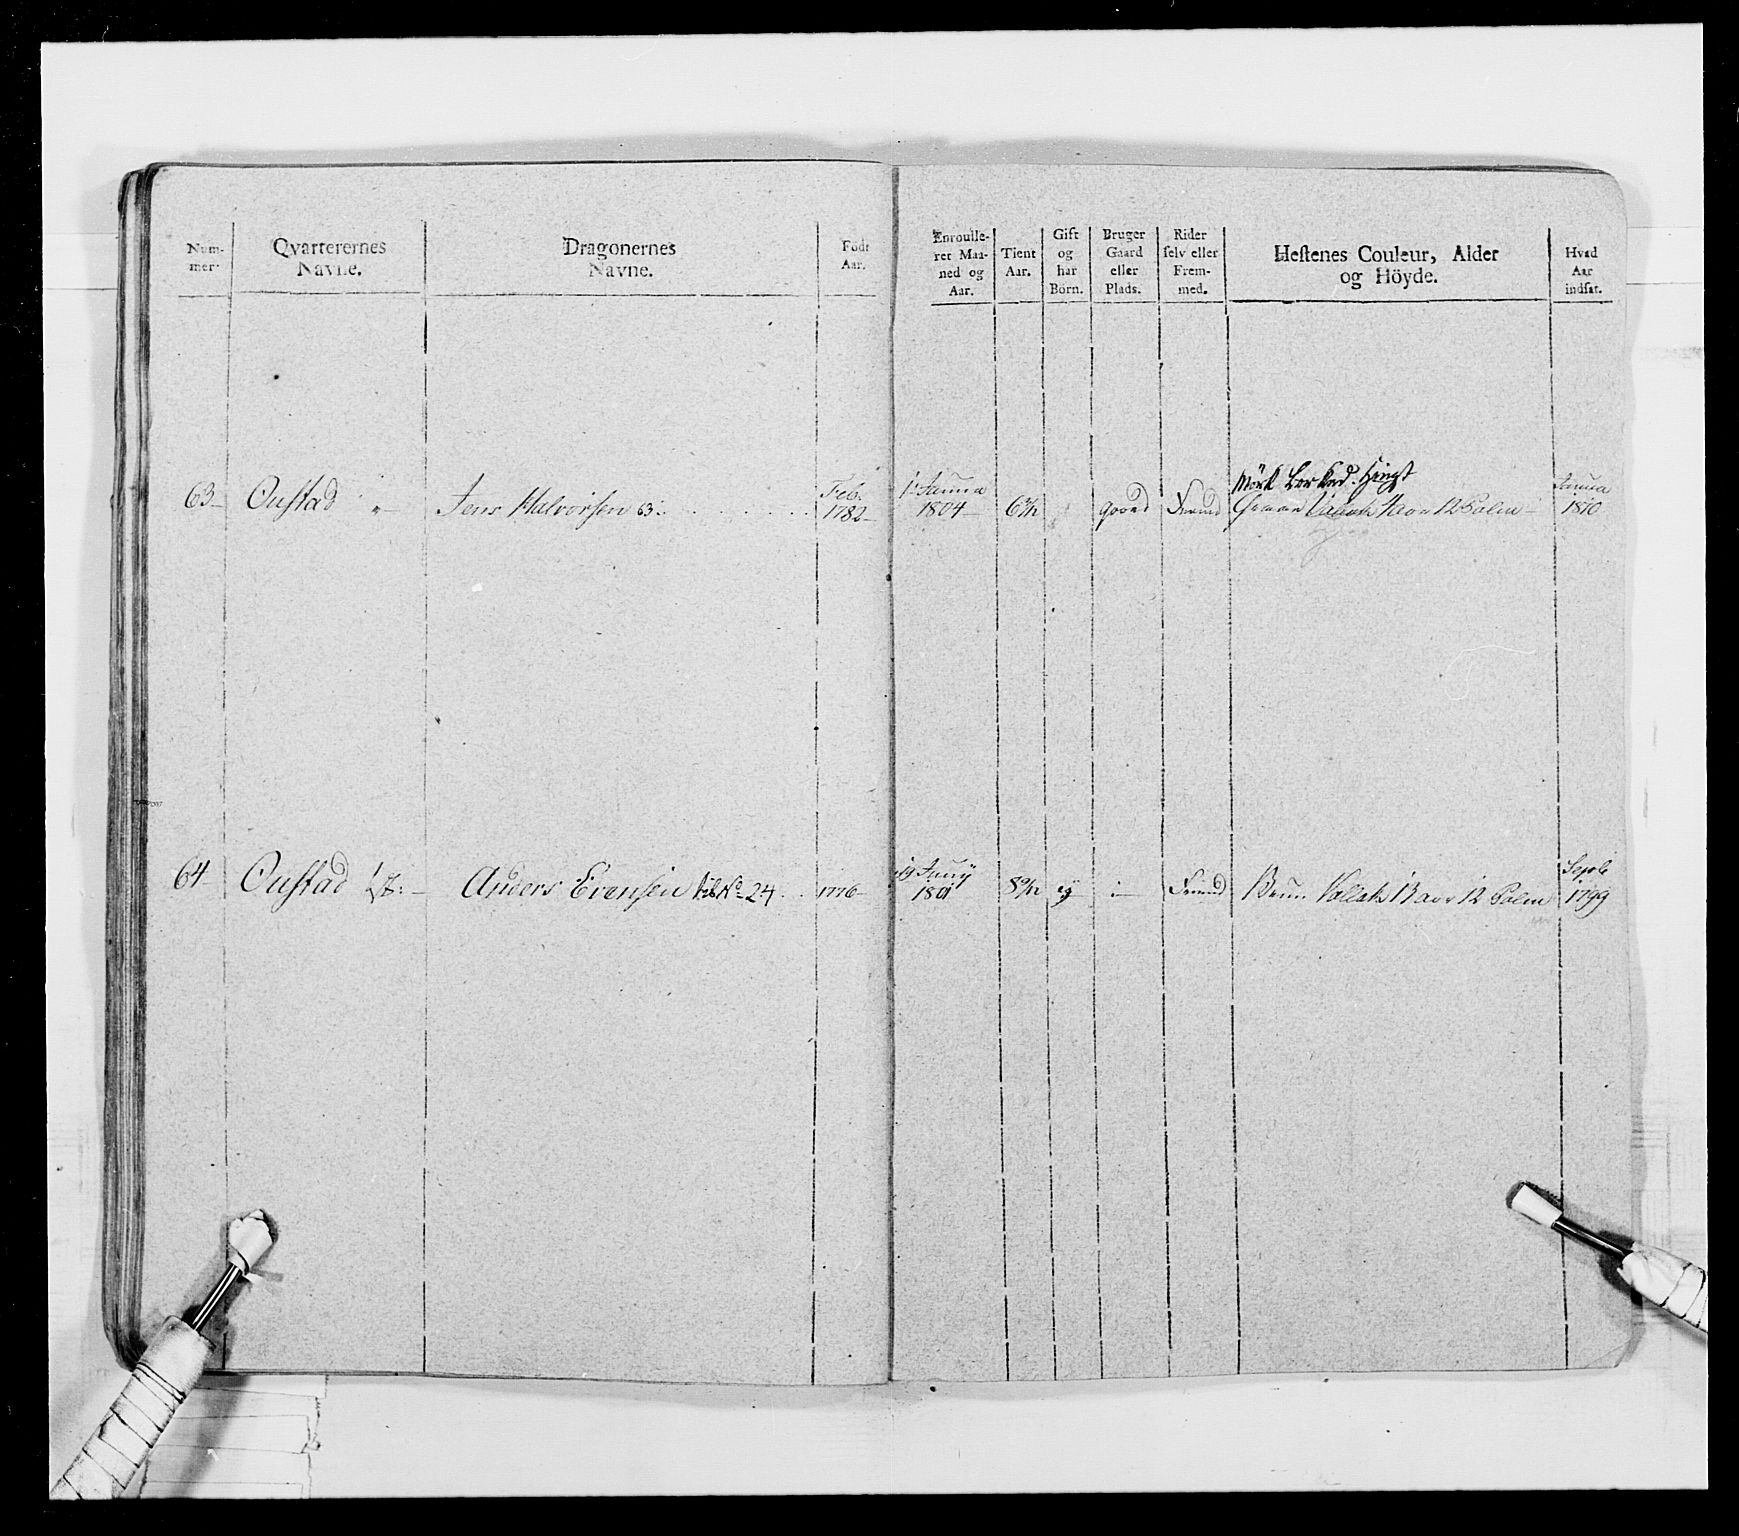 Num-
mer.
Qvarterernes
Navne.
Dragonernes
Navne.
Födt
Aar.
Enroulle-
ret Maa-
ned og
Aar.
Tient
Aar.
Gift
og
har
Börn.
Bruger
Gaard
eller
Plads.
Rider
selv eller
Frem-
med.
Hestenes Couleur, Alder
og Höyde.
Hvad
Aar
indsat.
63 Oustad Jens Halvorsen 63 Feb. 1782 1804 Gaard Fremd
Mörk Hingst
12 Palm
1810
64 Oustad Anders Evensen til No 24 1776 1801 ej Fremd Brun Vallak 13 aar 12 Palm Sept 1799